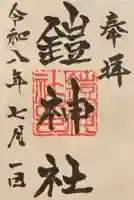 奉拝
鎧神社
令和八年七月一日